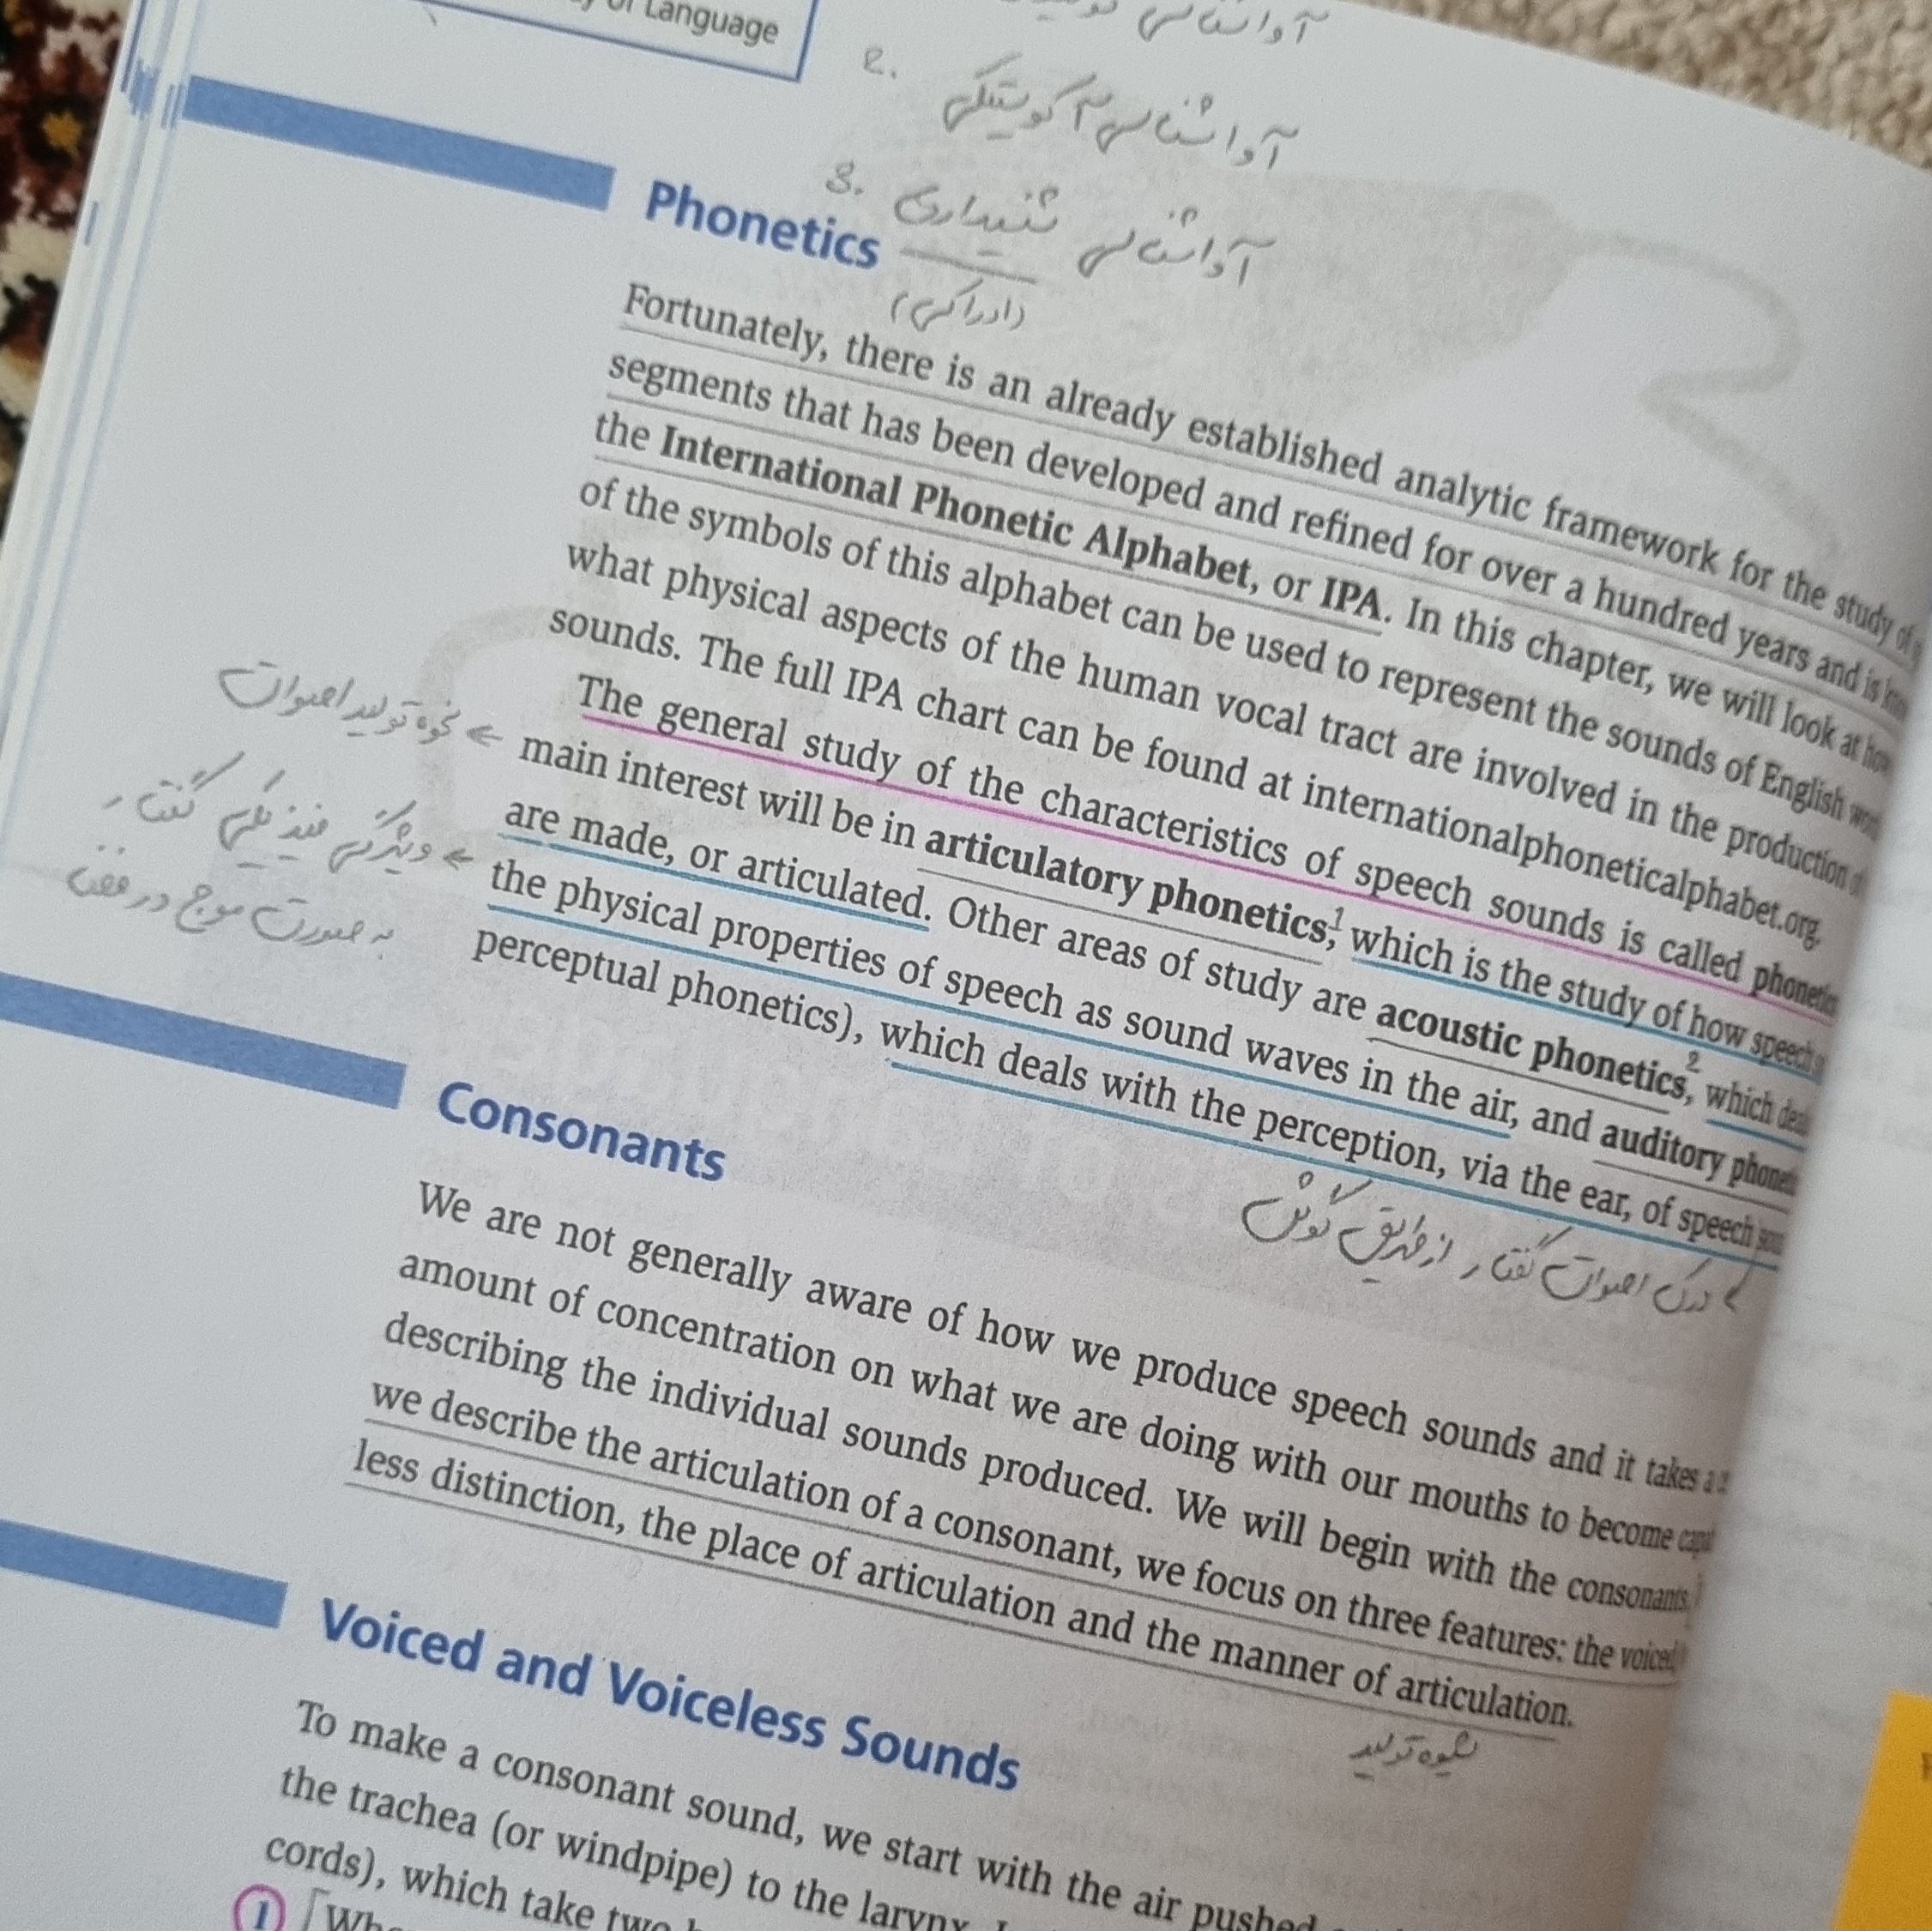 of Language
آواشناسی
2. آواشناسی آکوستیکی
3. آواشناسی شنیداری
(ادراکی)
Phonetics
Fortunately, there is an already established analytic framework for the study of
segments that has been developed and refined for over a hundred years and is
the International Phonetic Alphabet, or IPA. In this chapter, we will look at how
of the symbols of this alphabet can be used to represent the sounds of English
what physical aspects of the human vocal tract are involved in the production
sounds. The full IPA chart can be found at internationalphoneticalphabet.org.
The general study of the characteristics of speech sounds is called phonetics
نحوه تولید اصوات
main interest will be in articulatory phonetics,1 which is the study of how speech
are made, or articulated. Other areas of study are acoustic phonetics,2 which
ویژگی فیزیکی گفتار
به صورت موج در فضا
the physical properties of speech as sound waves in the air, and auditory
perceptual phonetics), which deals with the perception, via the ear, of speech
درک اصوات گفتار از طریق گوش
Consonants
We are not generally aware of how we produce speech sounds and it takes a
amount of concentration on what we are doing with our mouths to become
describing the individual sounds produced. We will begin with the consonants.
we describe the articulation of a consonant, we focus on three features: the voiced
less distinction, the place of articulation and the manner of articulation.
شیوه تولید
Voiced and Voiceless Sounds
To make a consonant sound, we start with the air pushed
the trachea (or windpipe) to the larynx.
cords), which take two
1